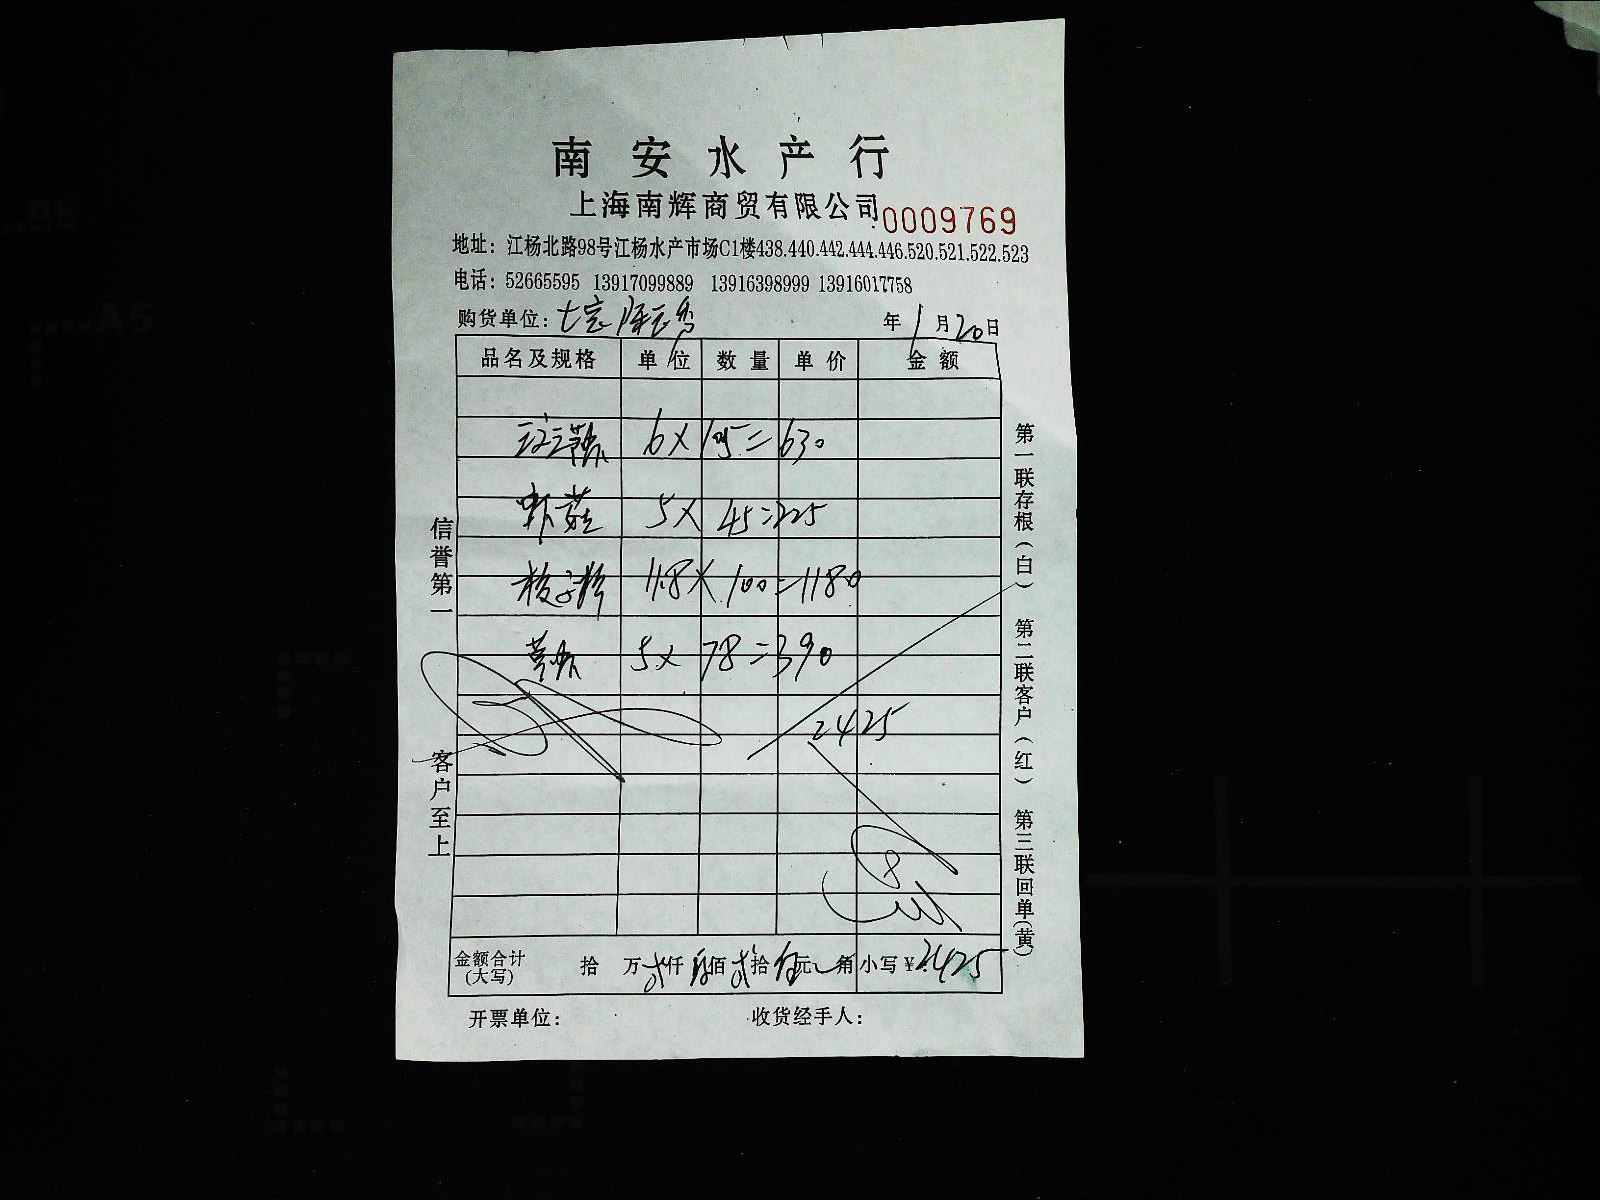 南安水产行
上海南辉商贸有限公司 0009769
地址：江杨北路98号江杨水产市场C1楼438.440.442.444.446.520.521.522.523
电话：52665595 13917099889 13916398999 13916017758
购货单位： 年1月20日
品名及规格 单位 数量 单价 金额
6×105=630
虾菇 5×45=225
11.8×100=1180
5×78=390
2425
金额合计(大写) 拾 万 贰仟 肆佰 贰拾 伍元 角 小写¥2425
开票单位： 收货经手人：
信誉第一 客户至上
第一联存根(白) 第二联客户(红) 第三联回单(黄)